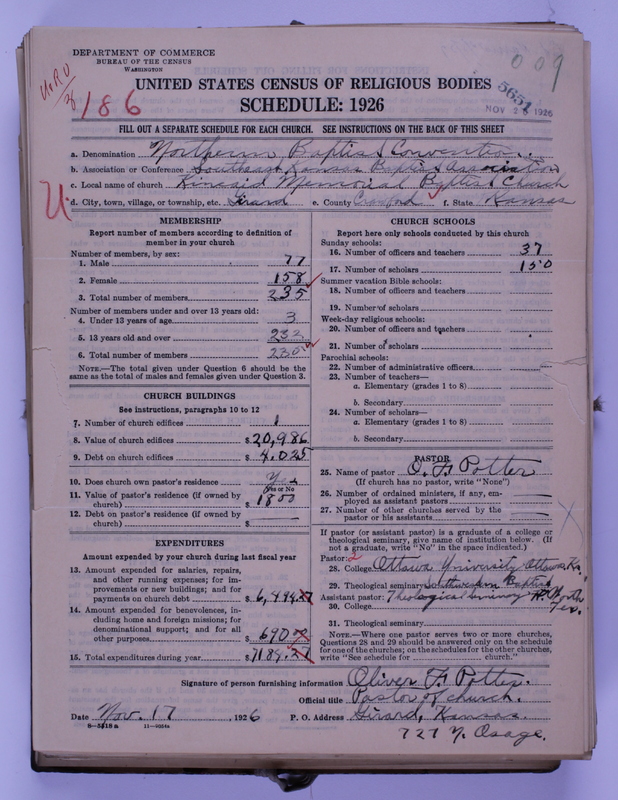 DEPARTMENT OF COMMERCE
BUREAU OF THE CENSUS
WASHINGTON
009
5651
NOV 26 1926
186
UNITED STATES CENSUS OF RELIGIOUS BODIES
SCHEDULE: 1926
FILL OUT A SEPARATE SCHEDULE FOR EACH CHURCH. SEE INSTRUCTIONS ON THE BACK OF THIS SHEET
a. Denomination Northern Baptist Convention
b. Association or Conference Southeast Kansas Baptist Association
c. Local name of church Kincaid Memorial Baptist Church
d. City, town, village, or township, etc. Girard e. County Crawford f. State Kansas
MEMBERSHIP
Report number of members according to definition of
member in your church
Number of members, by sex:
1. Male 77
2. Female 158
3. Total number of members 235
Number of members under and over 13 years old:
4. Under 13 years of age 3
5. 13 years old and over 232
6. Total number of members 235
NOTE.—The total given under Question 6 should be
the same as the total of males and females given under Question 3.
CHURCH BUILDINGS
See instructions, paragraphs 10 to 12
7. Number of church edifices 1
8. Value of church edifices $20,986
9. Debt on church edifices $4,025
10. Does church own pastor's residence? Yes
(Yes or No)
11. Value of pastor's residence (if owned by
church) $1800
12. Debt on pastor's residence (if owned by
church) $
EXPENDITURES
Amount expended by your church during last fiscal year
13. Amount expended for salaries, repairs,
and other running expenses; for im-
provements or new buildings; and for
payments on church debt $6,499.27
14. Amount expended for benevolences,
including home and foreign missions; for
denominational support; and for all
other purposes $690
15. Total expenditures during year $7189.27
CHURCH SCHOOLS
Report here only schools conducted by this church
Sunday schools:
16. Number of officers and teachers 37
17. Number of scholars 150
Summer vacation Bible schools:
18. Number of officers and teachers
19. Number of scholars
Week-day religious schools:
20. Number of officers and teachers
21. Number of scholars
Parochial schools:
22. Number of administrative officers
23. Number of teachers—
a. Elementary (grades 1 to 8)
b. Secondary
24. Number of scholars—
a. Elementary (grades 1 to 8)
b. Secondary
PASTOR
25. Name of pastor O. F. Potter
(If church has no pastor, write "None")
26. Number of ordained ministers, if any, em-
ployed as assistant pastors
27. Number of other churches served by the
pastor or his assistants
If pastor (or assistant pastor) is a graduate of a college or
theological seminary, give name of institution below. (If
not a graduate, write "No" in the space indicated.)
Pastor: 2
28. College Ottawa University Ottawa Ks.
29. Theological seminary Southwestern Baptist
Assistant pastor: Theological Seminary Ft. Worth
30. College Tex.
31. Theological seminary
NOTE.—Where one pastor serves two or more churches,
Questions 28 and 29 should be answered only on the schedule
for one of the churches; on the schedules for the other churches,
write "See schedule for church."
Signature of person furnishing information Oliver F. Potter.
Official title Pastor of church.
Date Nov. 17, 1926 P. O. Address Girard, Kansas.
727 N. Osage.